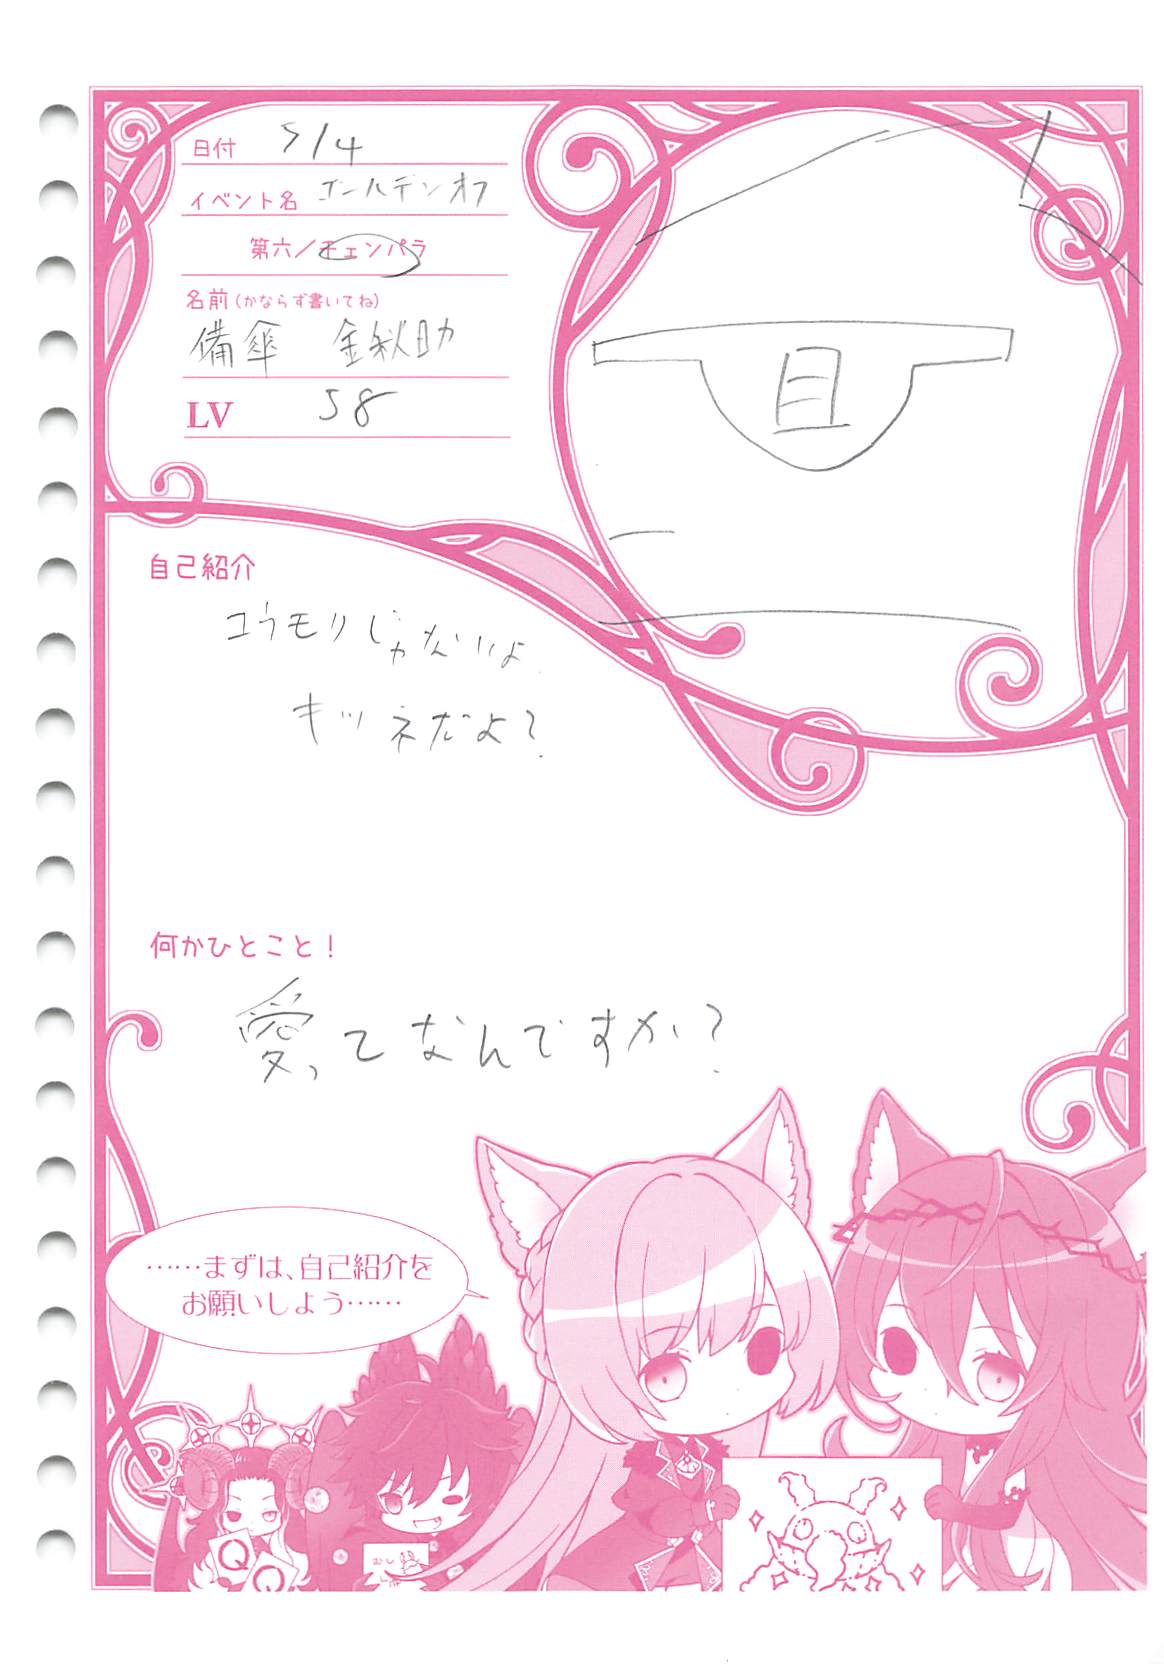 日付 5/4
イベント名 ゴールデンオフ
第六/チェンパラ
名前(かならず書いてね)
備傘 金秋助
LV 58
目
自己紹介
コウモリじゃないよ
キツネだよ?
何かひとこと!
愛ってなんですか?
……まずは、自己紹介を
お願いしよう……
Q
Q